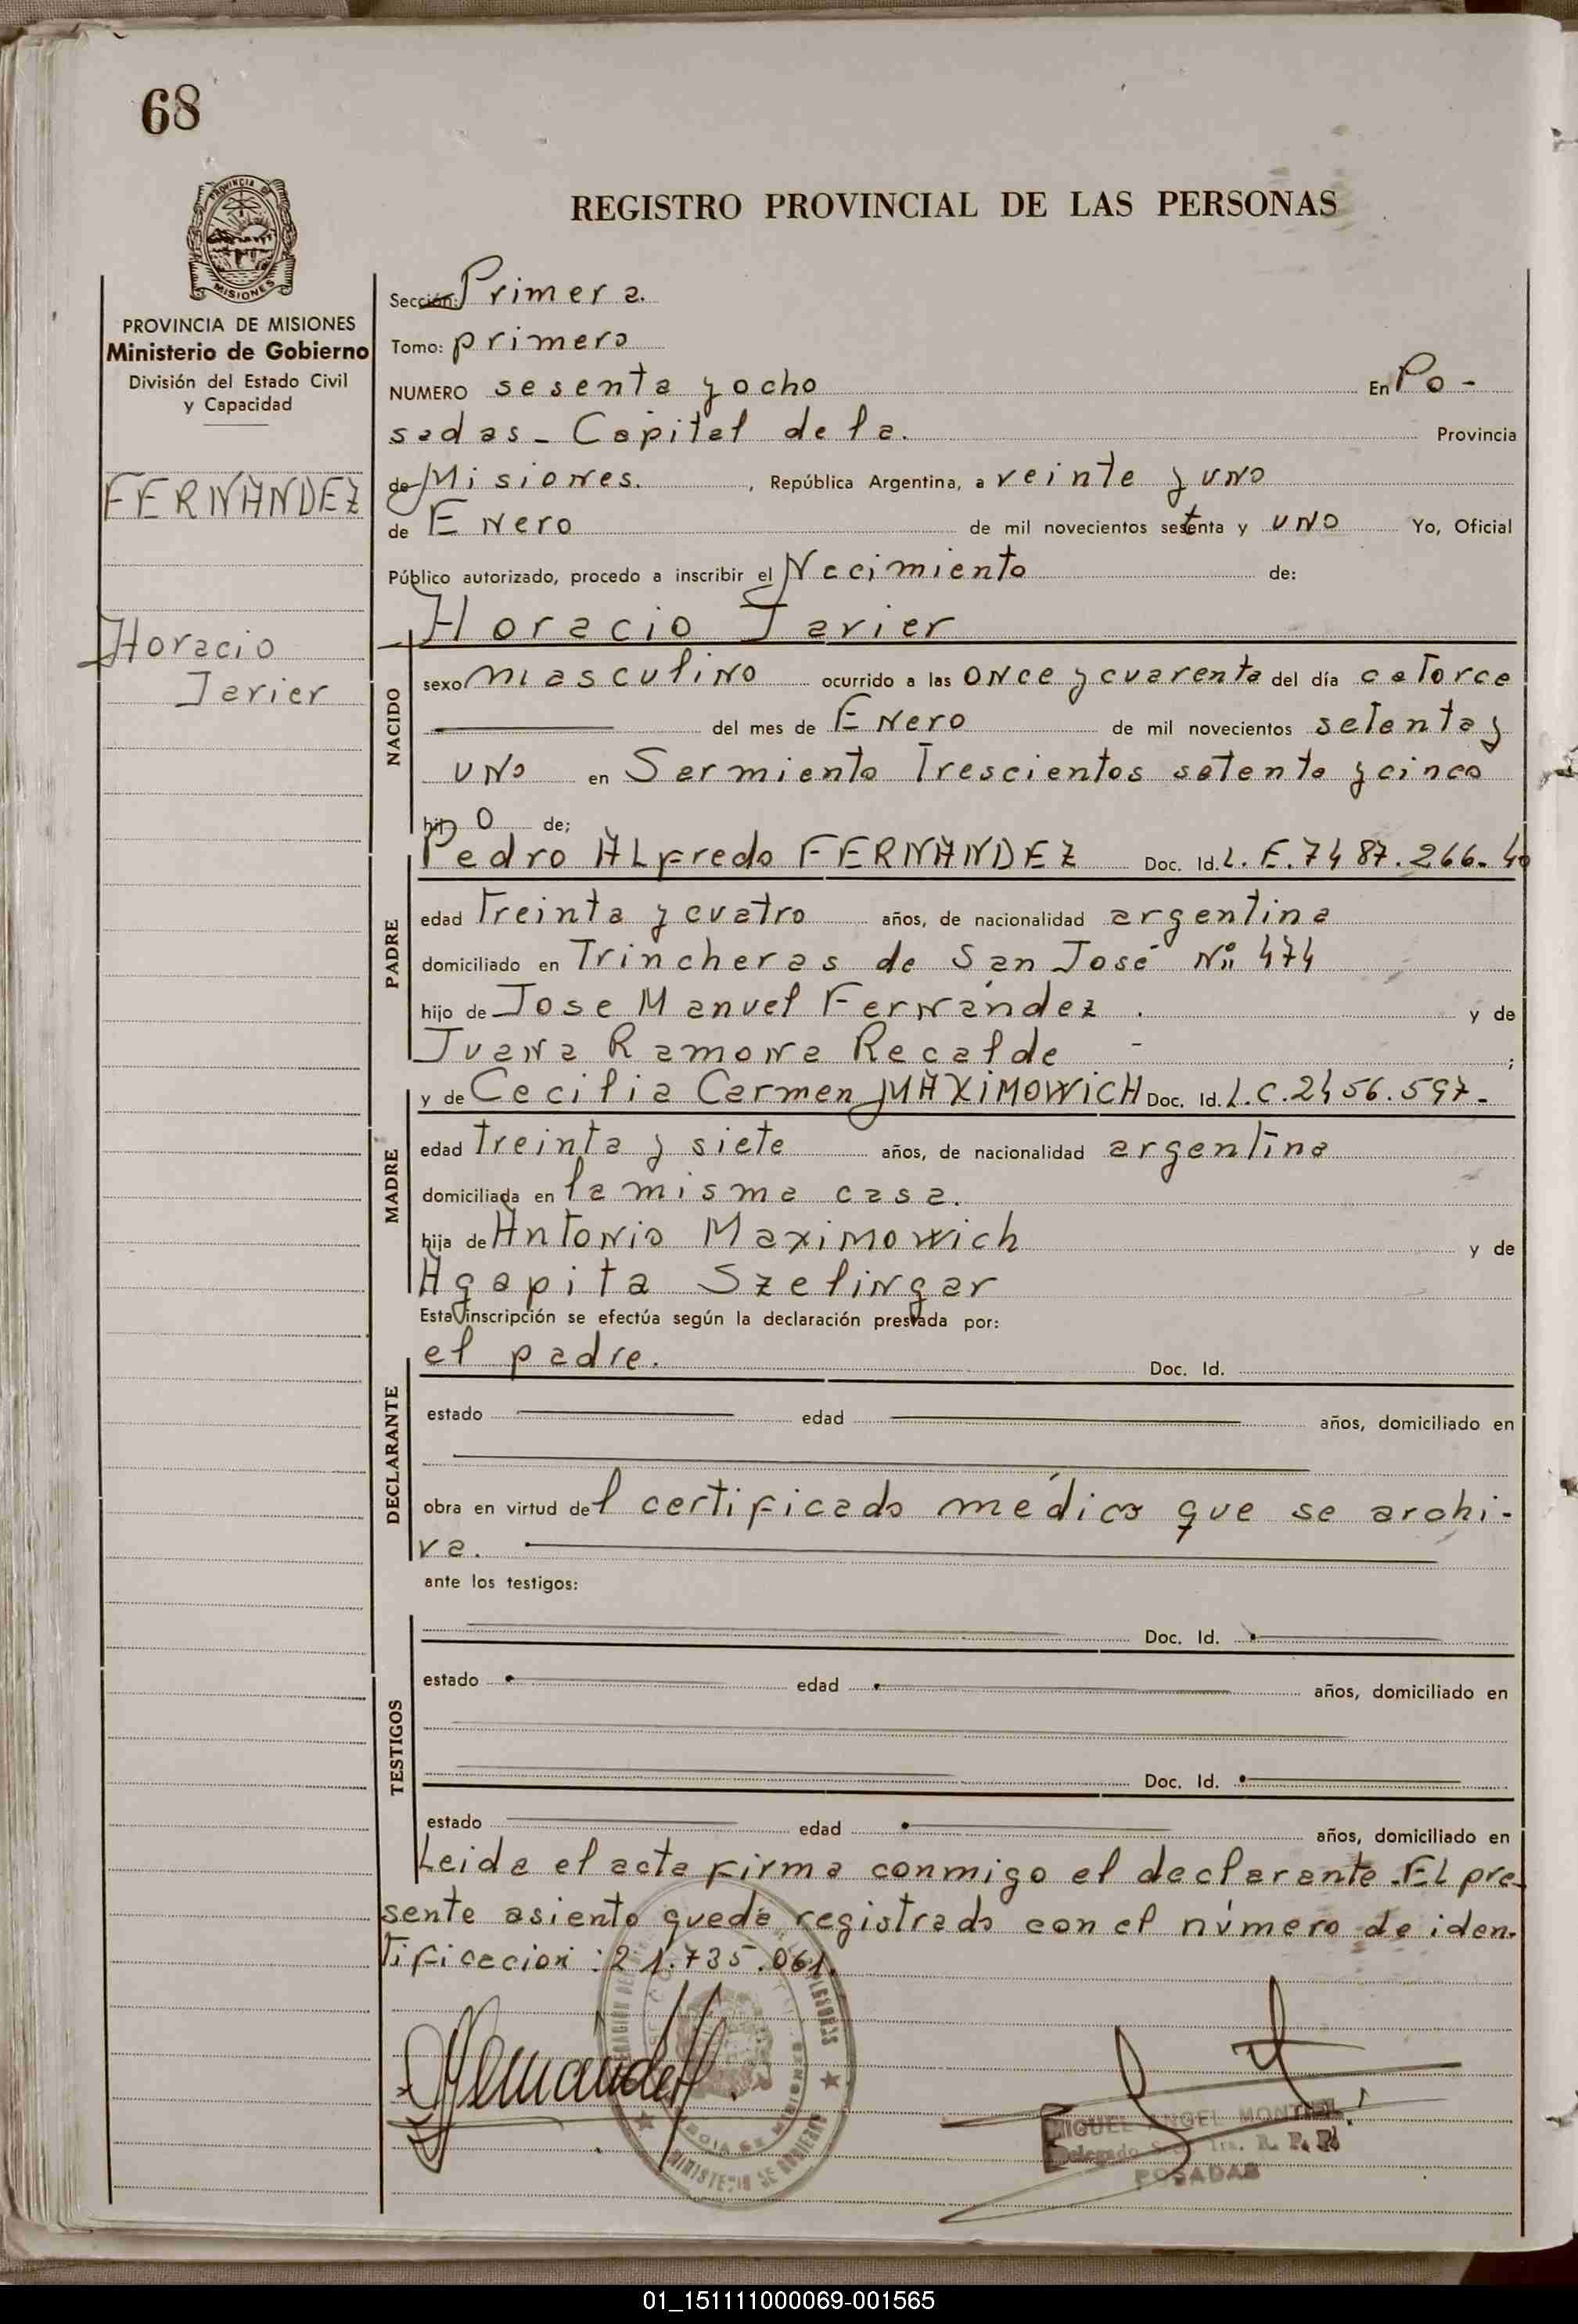 68
PROVINCIA DE
MISIONES
PROVINCIA DE MISIONES
Ministerio de Gobierno
División del Estado Civil
y Capacidad
FERNANDEZ
Horacio
Javier
REGISTRO PROVINCIAL DE LAS PERSONAS
Sección: Primera.
Tomo: primero
NUMERO sesenta y ocho En Po-
sadas - Capital de la. Provincia
de Misiones. , República Argentina, a veinte y uno
de Enero de mil novecientos setenta y uno Yo, Oficial
Público autorizado, procedo a inscribir el Nacimiento de:
Horacio Javier
NACIDO
sexo masculino ocurrido a las once y cuarenta del día catorce
del mes de Enero de mil novecientos setenta y
uno en Sarmiento Trescientos setenta y cinco
hijo de;
PADRE
Pedro Alfredo FERNANDEZ Doc. Id. L. E. 7487.266.
edad Treinta y cuatro años, de nacionalidad argentina
domiciliado en Trincheras de San José Nº 474
hijo de Jose Manuel Fernández . y de
Juana Ramona Recalde - ;
MADRE
y de Cecilia Carmen MAXIMOWICH Doc. Id. L. C. 2456.597.-
edad treinta y siete años, de nacionalidad argentina
domiciliada en la misma casa.
hija de Antonio Maximowich y de
Agapita Szelingar
Esta inscripción se efectúa según la declaración prestada por:
DECLARANTE
el padre. Doc. Id.
estado edad años, domiciliado en
obra en virtud del certificado médico que se archi-
va.
ante los testigos:
TESTIGOS
Doc. Id.
estado edad años, domiciliado en
Doc. Id.
estado edad años, domiciliado en
Leida el acta firma conmigo el declarante. El pre-
sente asiento queda registrado con el número de iden-
tificacion: 21.735.061.
Fernandez
MINISTERIO DE GOBIERNO
MIGUEL ANGEL
Delegado R. P. P.
POSADAS
01_151111000069-001565